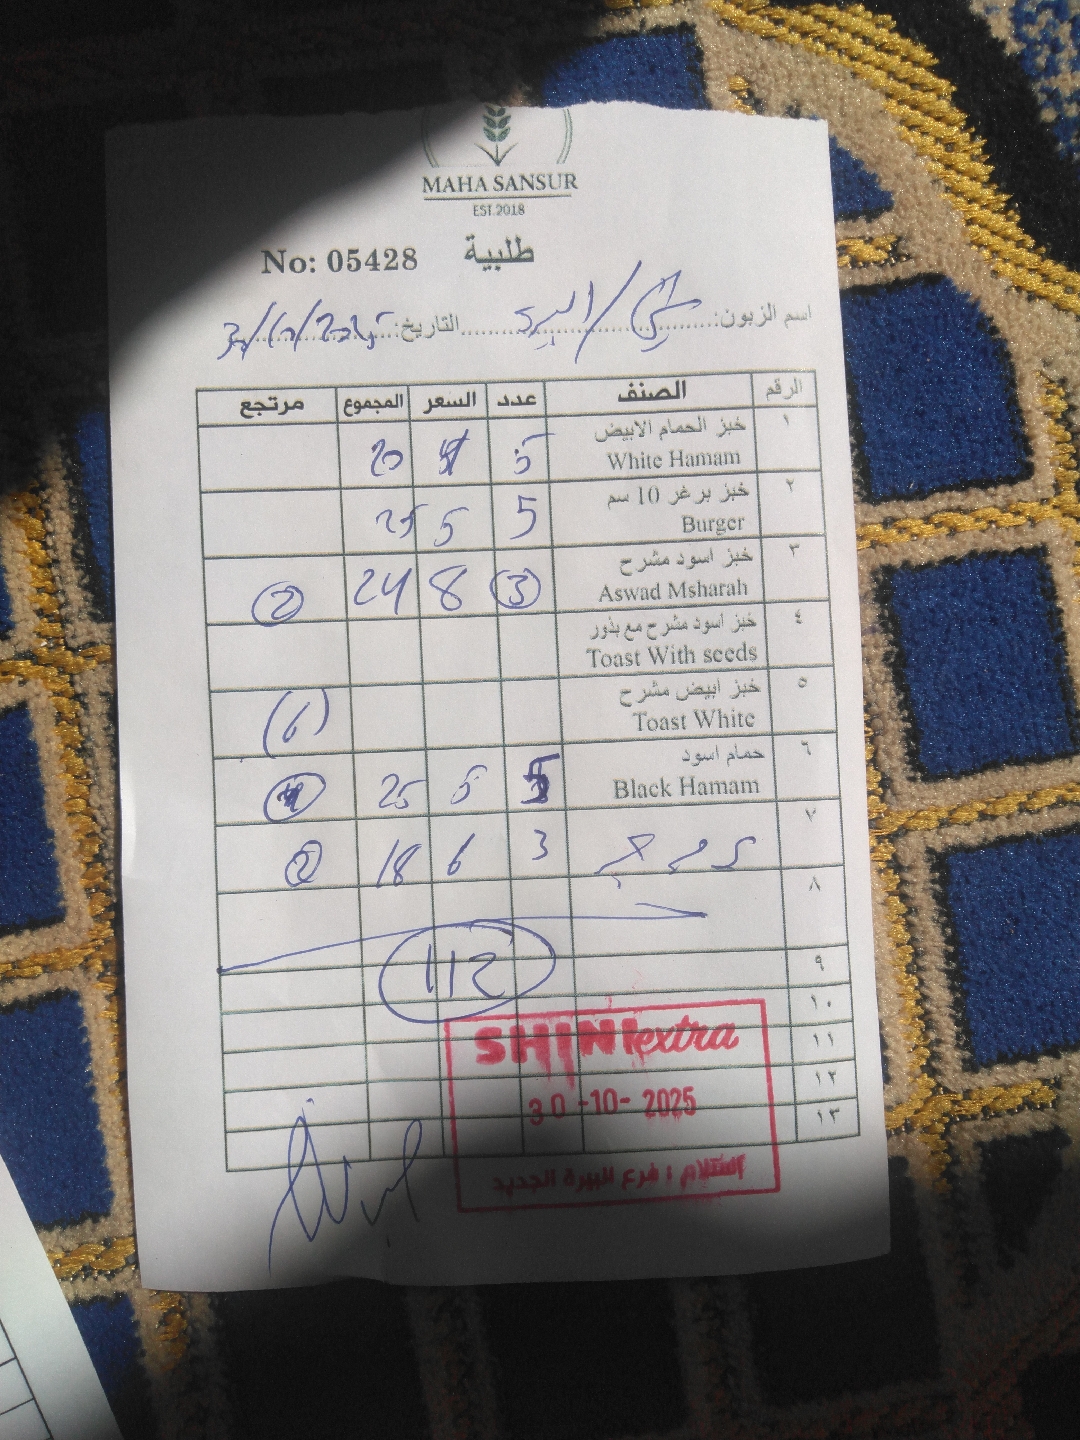 MAHA SANSUR
EST.2018
No: 05428 طلبية
اسم الزبون: شني / البيرة التاريخ: 30/10/2025
الرقم الصنف عدد السعر المجموع مرتجع
١ خبز الحمام الابيض 5 4 20
White Hamam
٢ خبز برغر 10 سم 5 5 25
Burger
٣ خبز اسود مشرح 3 8 24 2
Aswad Msharah
٤ خبز اسود مشرح مع بذور
Toast With seeds
٥ خبز ابيض مشرح (6)
Toast White
٦ حمام اسود 5 5 25
Black Hamam
٧ 3 6 18 2
٨
112
٩
١٠
١١
١٢
١٣
SHINI extra
30-10-2025
استلام : فرع البيرة الجديد